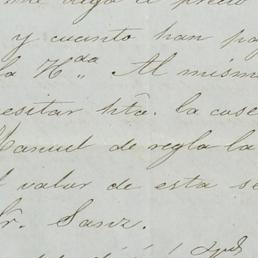 me diga el precio
y cuanto han pa
la H.da „ Al mism
esitar hta. la cose
Manuel de regla la
l valor de esta se
r. Sanz.